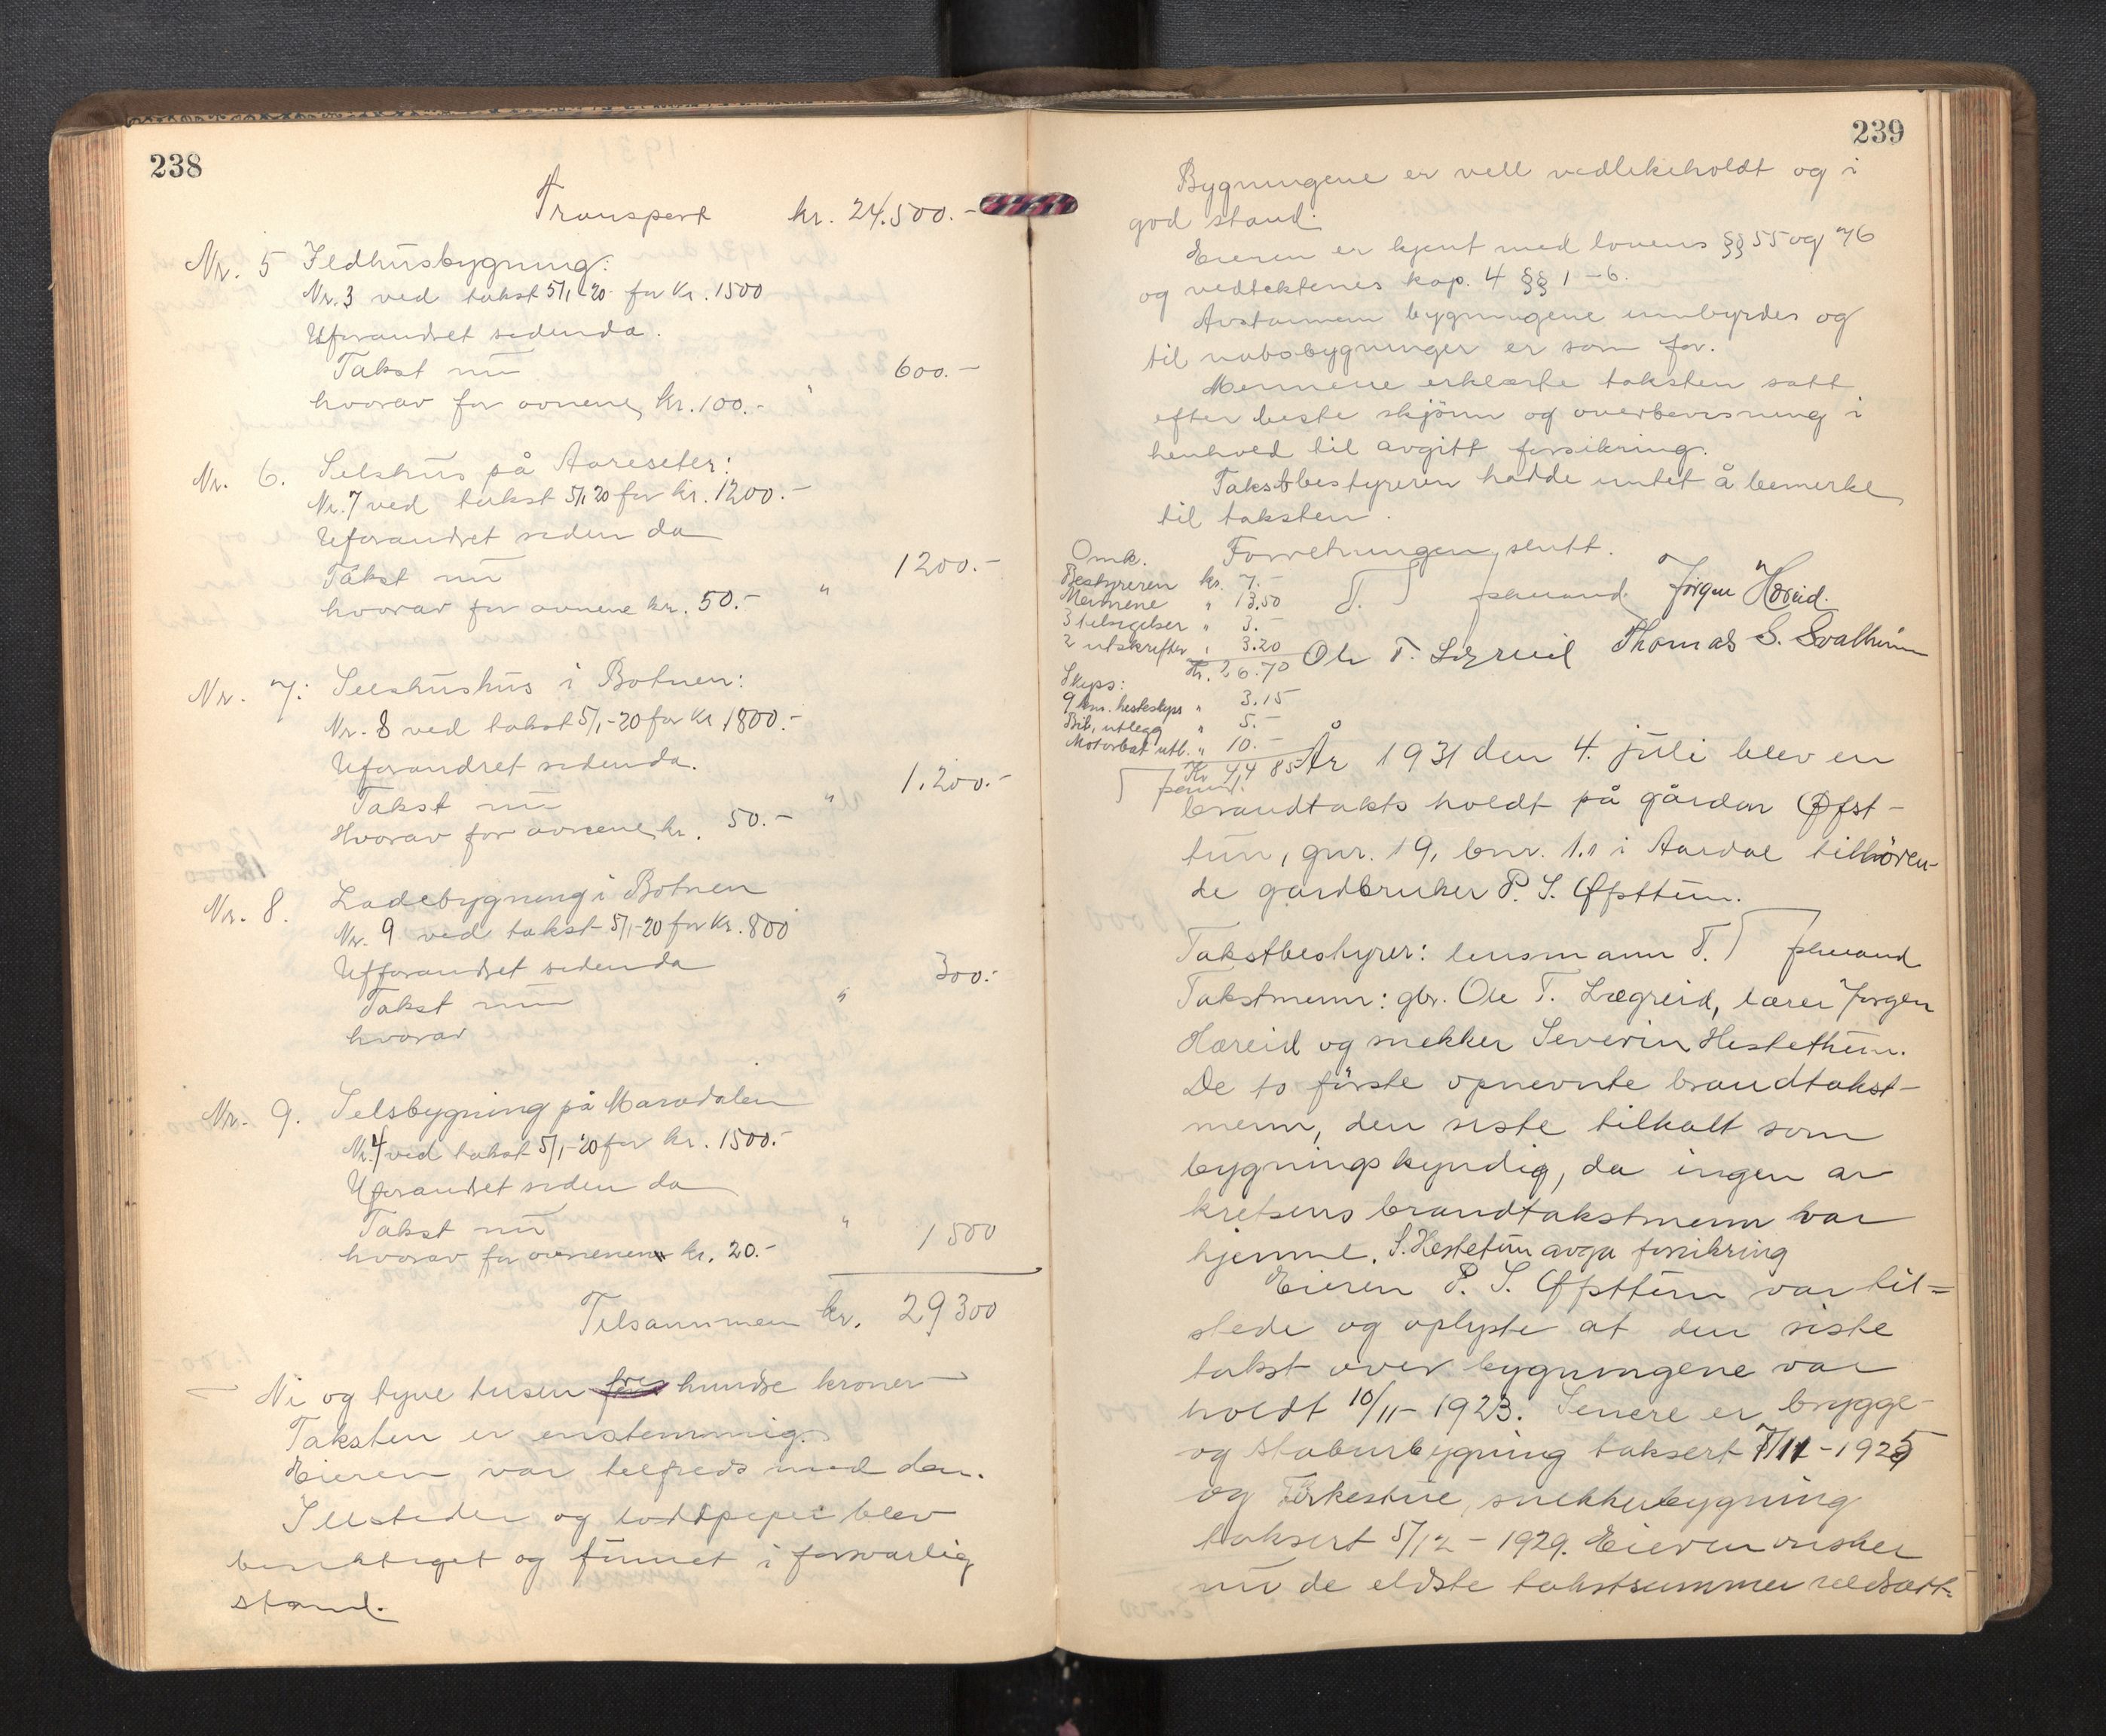 238
Transport kr. 24.500.-
Nr. 5 Ildhusbygning:
Nr. 3 ved takst 5/1-20 for kr. 1500
Uforandret sidenda.
Takst nu " 600.-
hvorav for ovnene kr. 100.-
Nr. 6. Selshus på Aareseter:
Nr. 7 ved takst 5/1 20 for kr. 1200.-
Uforandret siden da
Takst nu " 1200.-
hvorav for ovnene kr. 50.-
Nr. 7. Selshushus i Botnen:
Nr. 8 ved takst 5/1-20 for kr 1800.-
Uforandret sidenda.
Takst nu " 1.200.-
Hvorav for ovnene kr. 50.-
Nr. 8. Ladebygning i Botnen
Nr. 9 ved takst 5/1-20 for kr. 800
Ufforandret sidenda
Takst nu " 300.-
hvorav
Nr. 9. Selsbygning på Maradalen
Nr. 4 ved takst 5/1-20 for kr. 1500.-
Uforandret siden da
Takst nu " 1500
hvorav for ovnenene kr. 20.-
Tilsammen kr. 29300
- Ni og tyve tusen tre hundre kroner -
Taksten er enstemmig.
Eieren var tilfreds med den.
Ildsteder og loddpiper blev
besiktiget og funnet i forsvarlig
stand.
239
Bygningene er vell vedlikeholdt og i
god stand.
Eieren er kjent med lovens §§ 55 og 76
og vedtektenes kap. 4 §§ 1-6.
Avstannem bygningene innbyrdes og
til nabobygninger er som for.
Mennene erklærte taksten satt
efter beste skjönn og overbevisning i
henhold til avgitt forsikring.
Takstbestyreren hadde intet å bemerke
til taksten.
Forretningen slutt.
Jørgen Hæreid.
Ole T. Lægreid Thomas S. Svalheim
Omk.
Bestyreren kr. 7.-
Mennene " 13.50
3 tilsigelser " 3.-
2 utskrifter " 3.20
Kr. 26.70
Skyss:
9 km. hesteskyss " 3.15
Bil, utlegg " 5.-
Motorbåt utl. " 10.-
Kr 44 85
År 1931 den 4. juli blev en
brandtakts holdt på gården Øfst-
tun, gnr. 19, bnr. 1.1 i Aardal tilhören-
de gardbruker P. S. Øfsttun.
Takstbestyrer: lensmann T.
Takstmenn: gbr. Ole T. Lægreid, lærer Jørgen
Hæreid og snekker Severin Hestethun.
De to förste opnevnte brandtakst-
menn, den siste tilkalt som
bygningskyndig, da ingen av
kretsens brandtakstmenn var
hjemme. S. Hestetun avga forsikring
Eieren P. S. Øfsttun var til=
stede og oplyste at den siste
takst over bygningene var
holdt 10/11-1923. Senere er brygge-
og stabursbygning taksert 7/11-1925
og Törkestue, snekkerbygning
taksert 5/12-1929. Eieren önsker
nu de eldste takstsummer nedsatt-